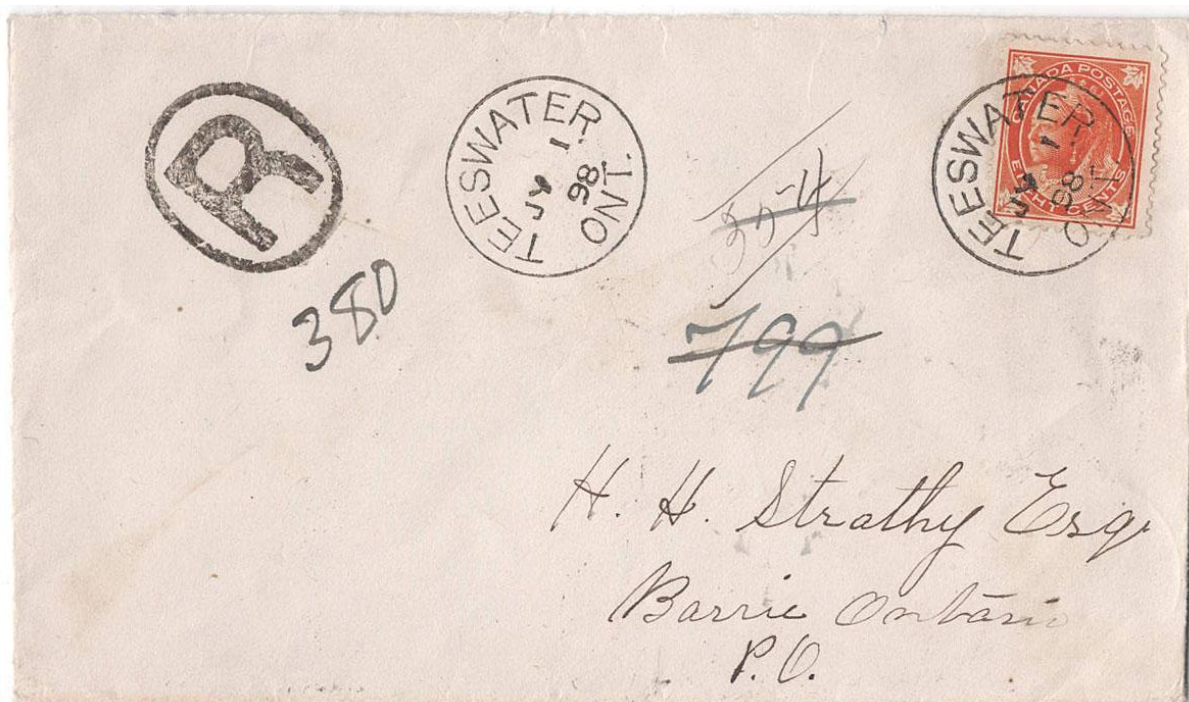 R
380
TEESWATER ONT.
1
JY
98
799
CANADA POSTAGE
EIGHT CENTS
TEESWATER ONT
1
JY
98
H. H. Strathy Esq.
Barrie Ontario
P.O.